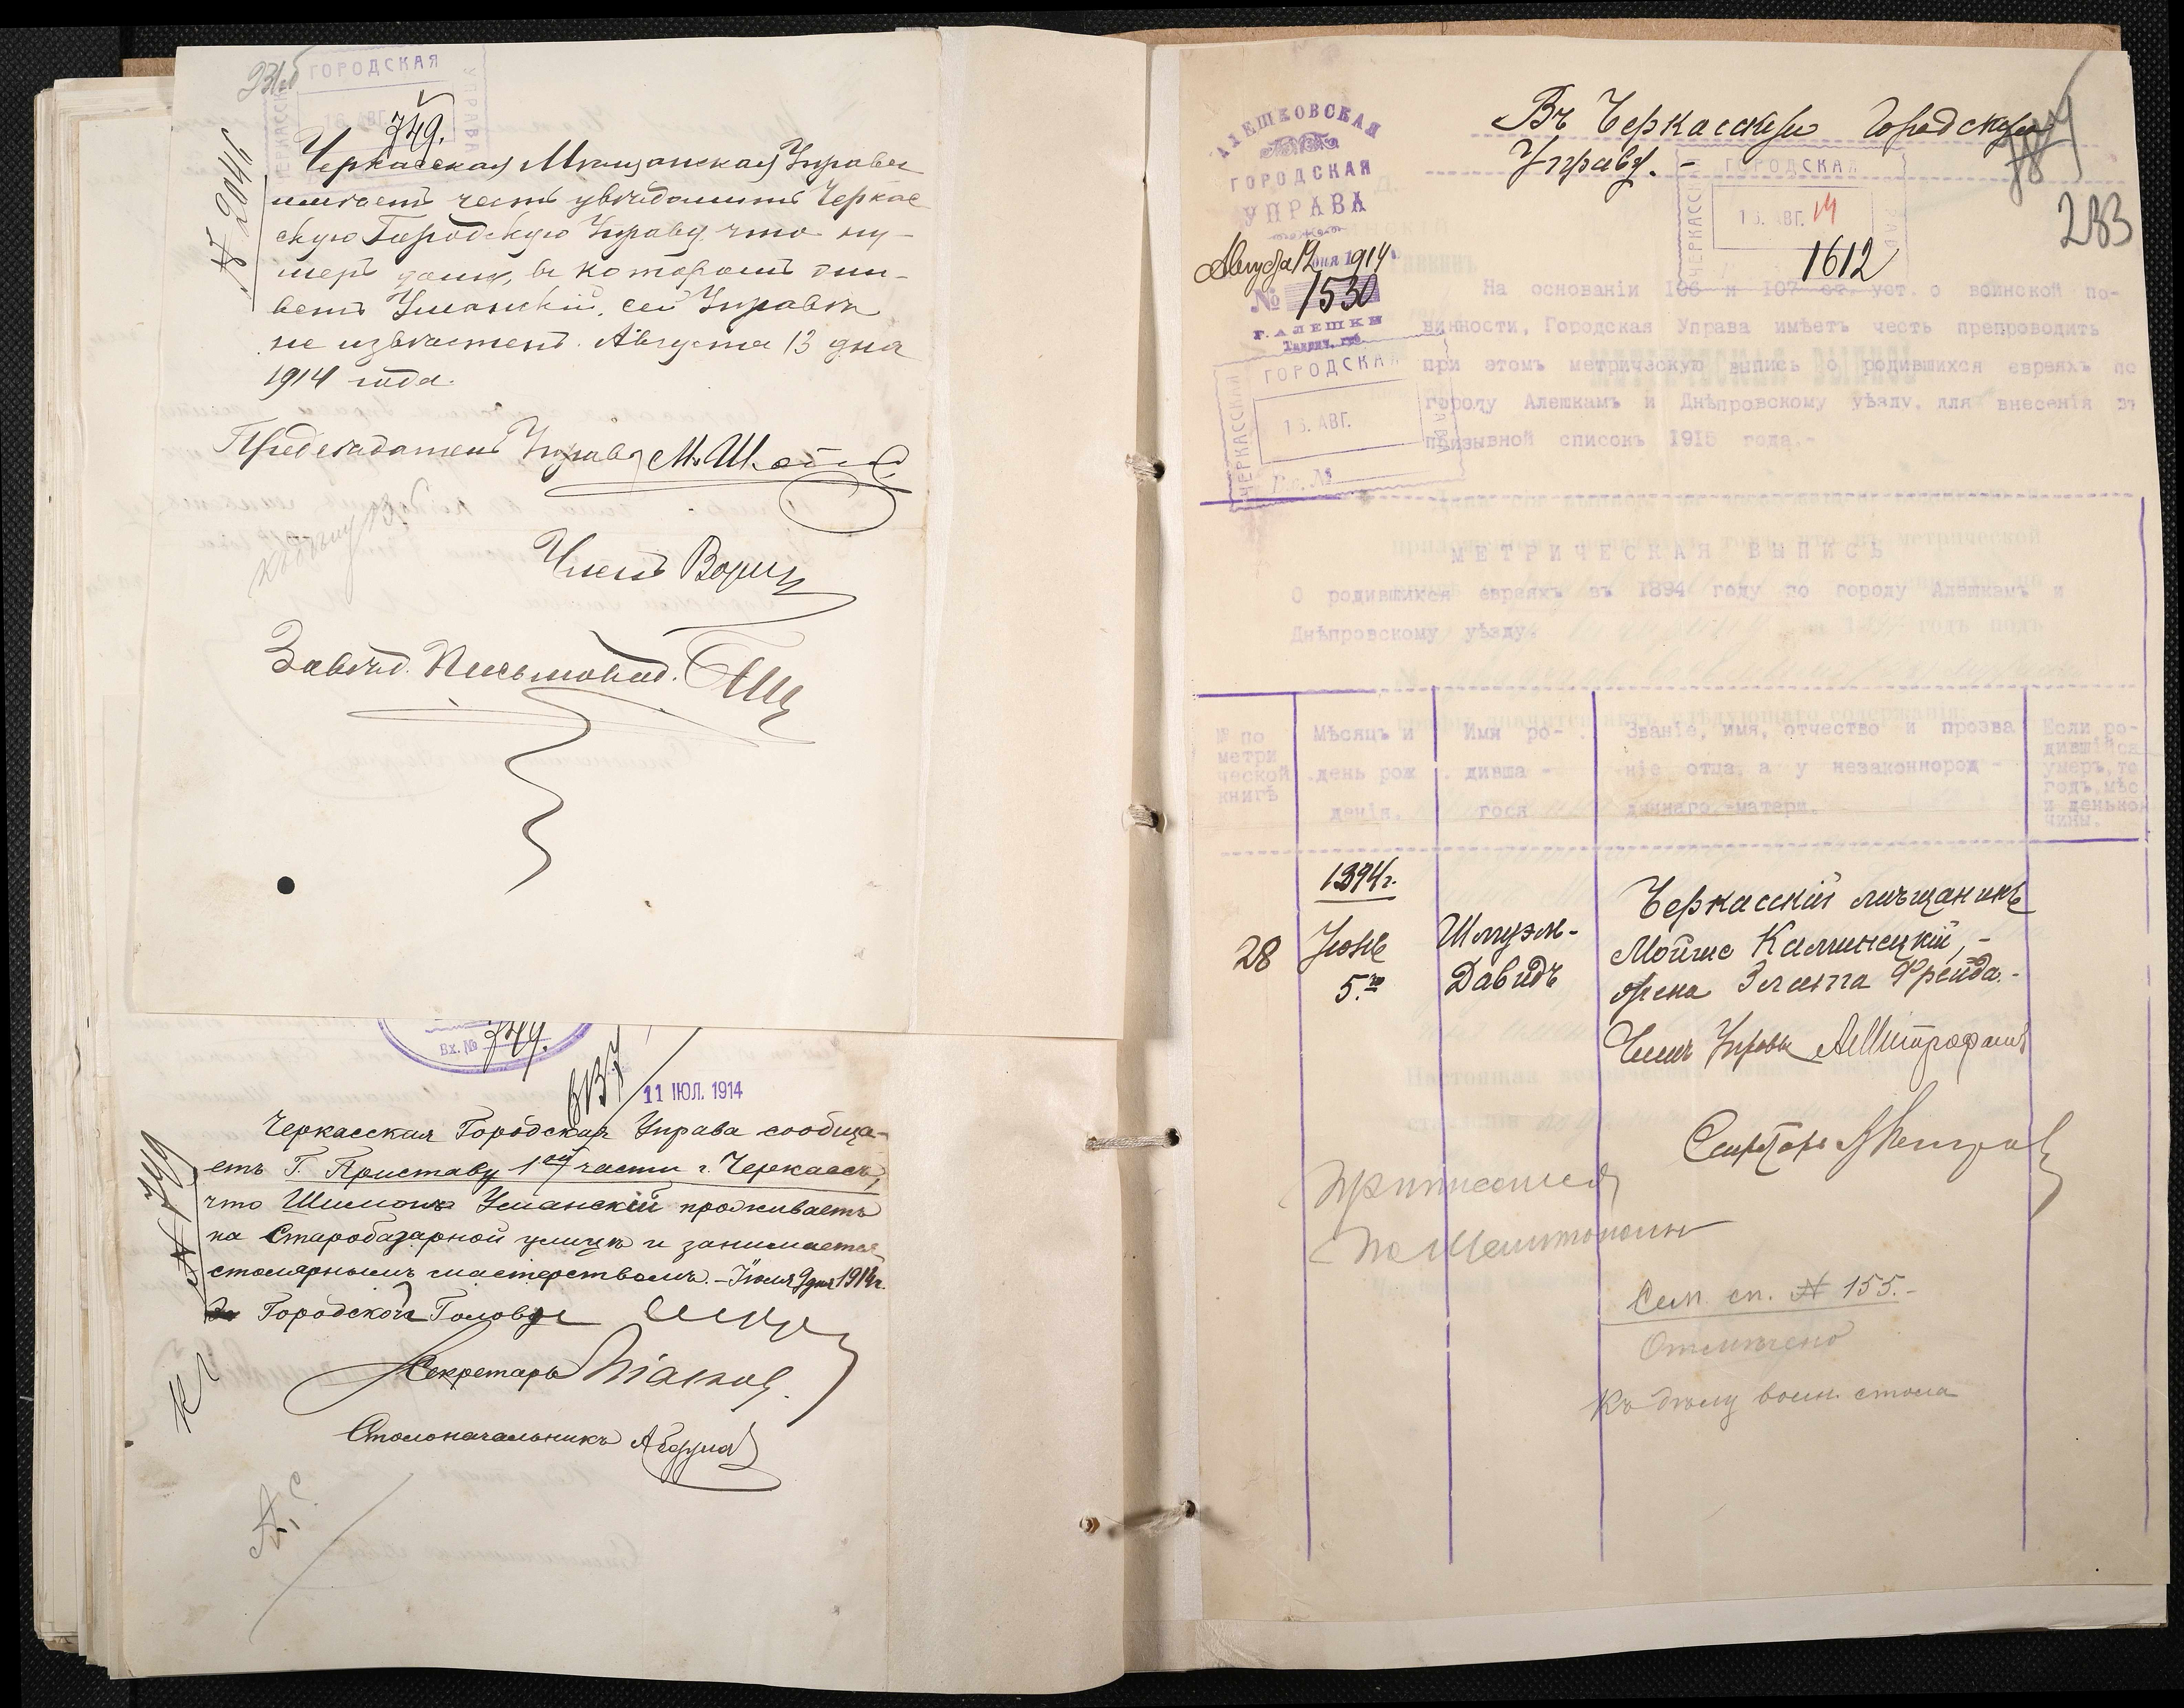 ГОРОДСКАЯ
ЧЕРКАССКАЯ
УПРАВА
749.
№ 2046
Черкасская Мѣщанская Управа
имѣетъ честь увѣдомить Черкас
скую Городскую Управу, что ну-
меръ дома, въ которомъ жи-
ветъ Уманскій, сей Управѣ
не извѣстенъ. Августа 13 дня
1914 года.
Предсѣдатель Управы
Членъ
Завѣд. Письмовод.
Вх. № 749.
11 ІЮЛ. 1914
№ 749
Черкасская Городская Управа сообща-
етъ Г. Приставу 1ой части г. Черкассъ,
что Шимонъ Уманскій проживаетъ
на Старобазарной улицѣ и занимается
столярнымъ мастерствомъ. - Іюля 9 дня 1914 г.
Городской Голова
Секретарь
Столоначальникъ
АЛЕШКОВСКАЯ
ГОРОДСКАЯ
УПРАВА
Августа 12 дня 1914 г.
№ 1530
Г. АЛЕШКИ
Таврич. губ.
Въ Черкасскую Городскую
Управу. -
283
ЧЕРКАССКАЯ
ГОРОДСКАЯ
16. АВГ. 14
1612
ЧЕРКАССКАЯ
ГОРОДСКАЯ
16. АВГ.
На основаніи 106 и 107 ст. уст. о воинской по-
винности, Городская Управа имѣетъ честь препроводить
при этомъ метрическую выпись о родившихся евреяхъ по
городу Алешкамъ и Днѣпровскому уѣзду, для внесенія въ
призывной списокъ 1915 года.-
МЕТРИЧЕСКАЯ ВЫПИСЬ
О родившихся евреяхъ въ 1894 году по городу Алешкамъ и
Днѣпровскому уѣзду.
№ по
метри
ческой
книгѣ
Мѣсяцъ и
день рож
денія.
Имя ро-
дивша -
гося
Званіе, имя, отчество и прозва
ніе отца, а у незаконнорож -
деннаго -матери.
Если ро-
дившійся
умеръ, то
годъ, мѣс
и день кон
чины.
1894 г.
28
Іюнь
5.го
Шмуэл-
Давидъ
Черкасскій мѣщанинъ
Мойше Каминецкій, -
жена Злата Фрейда. -
Членъ Управы АМитрофановъ
Секретарь
Сем. сп. № 155. -
Отмѣчено
Къ дѣлу воин. стола